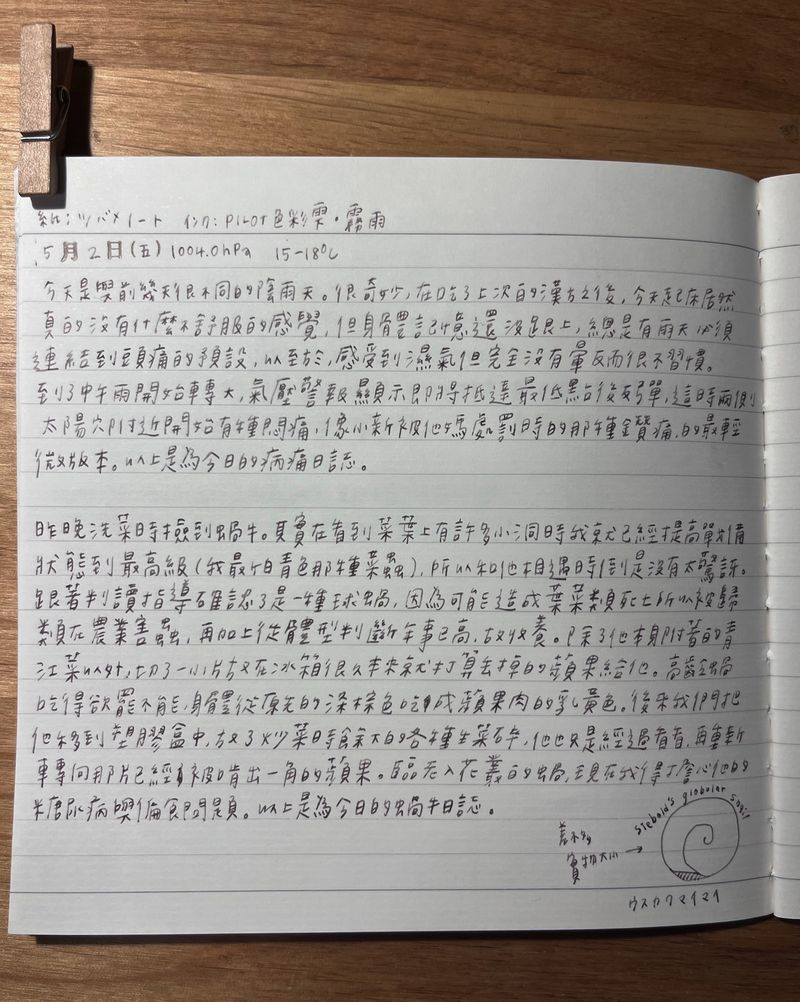 紙：ツバメノート　インク：PILOT色彩雫・霧雨
5月2日(五) 1004.0hPa　15-18℃
今天是與前幾天很不同的陰雨天。很奇妙，在吃了上次的漢方之後，今天起床居然
真的沒有什麼不舒服的感覺，但身體記憶還沒跟上，總是有雨天必須
連結到頭痛的預設，以至於，感受到濕氣但完全沒有暈反而很不習慣。
到了中午雨開始轉大，氣壓警報顯示即將抵達最低點後反彈，這時兩側
太陽穴附近開始有種悶痛，像小新被他媽處罰時的那種鑽痛，的最輕
微版本。以上是為今日的病痛日誌。
昨晚洗菜時撿到蝸牛。其實在看到菜葉上有許多小洞時我就已經提高戰備
狀態到最高級(我最怕青色那種菜蟲)，所以和他相遇時倒是沒有太驚訝。
跟著判讀指導確認了是一種球蝸，因為可能造成葉菜類死亡所以被歸
類在農業害蟲，再加上從體型判斷年事已高，故收養。除了他本身附著的青
江菜以外，切了一小片放在冰箱很久本來就打算丟掉的蘋果給他。高齡蝸
吃得欲罷不能，身體從原先的深棕色吃成蘋果肉的乳黃色。後來我們把
他移到塑膠盒中，放了炒菜時餘下的各種生菜碎，他也只是經過看看，再重新
轉向那片已經被啃出一角的蘋果。臨老入花叢的蝸，現在我得擔心他的
糖尿病與偏食問題。以上是為今日的蝸牛日誌。
Siebold's globular snail
差不多
實物大小 →
ウスカワマイマイ